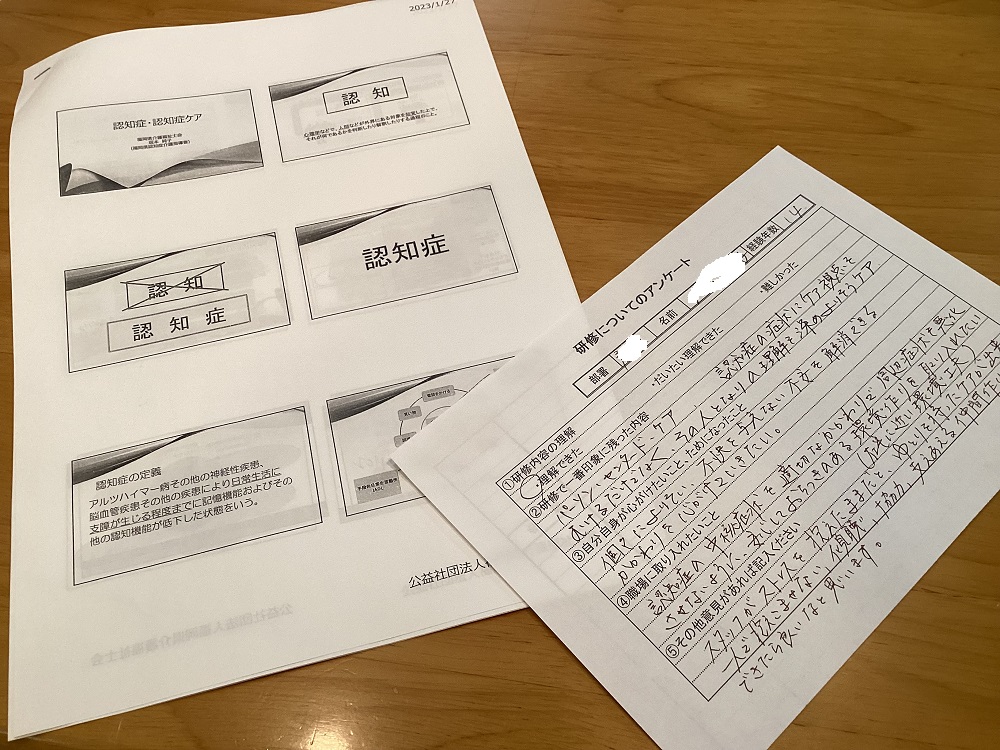 2023/1/27
認知症・認知症ケア
福岡県介護福祉士会
(福岡県認知症介護指導者)
認 知
心理学などで、人間などが外界にある対象を知覚した上で、
それが何であるかを判断したり解釈したりする過程のこと。
認 知
認 知 症
認知症
認知症の定義
アルツハイマー病その他の神経性疾患、
脳血管疾患その他の疾患により日常生活に
支障が生じる程度までに記憶機能およびその
他の認知機能が低下した状態をいう。
電話をかける
買い物
手段的日常生活動作
(IADL)
公益社団法人
研修についてのアンケート
部署
名前
経験年数 14
①研修内容の理解
理解できた ・だいたい理解できた ・難しかった
②研修で一番印象に残った内容
パーソンセンタード・ケア 認知症の症状にケア視点を
むけるだけでなく、その人となりの理解を深め より添うケア
③自分自身が心がけたいこと、ためになったこと
個々によりそい、不快を与えない 不安を解消できる
かかわりを心がけていきたい。
④職場に取り入れたいこと
認知症の中核症状を適切なかかわりで周辺症状を悪化
させないように、安心しておちつきのある環境作りを取り入れたい
⑤その他意見があれば記入ください
スタッフがストレスを抱えこまないよう、ゆとりをもったケアが出来
人で抱えこませない 傾聴、協力、支えあえる仲間作り
できたら良いなと思います。